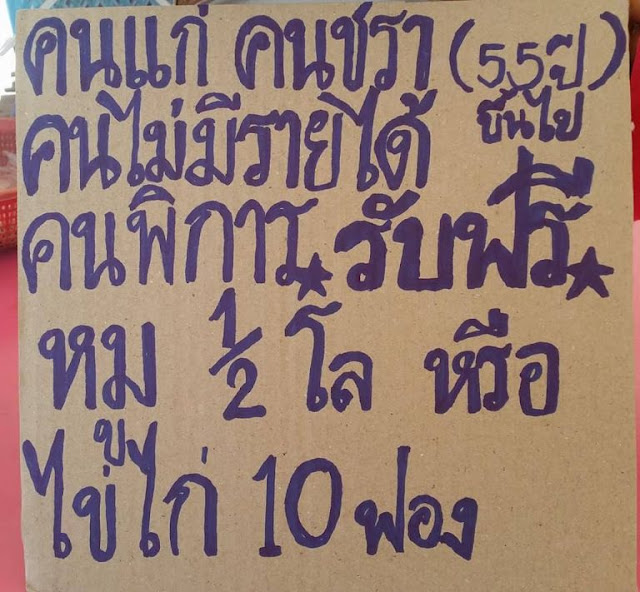 คนแก่ คนชรา (55ปี)
ขึ้นไป
คนไม่มีรายได้
คนพิการ★รับฟรี★
หมู ½ โล หรือ
ไข่ไก่ 10 ฟอง